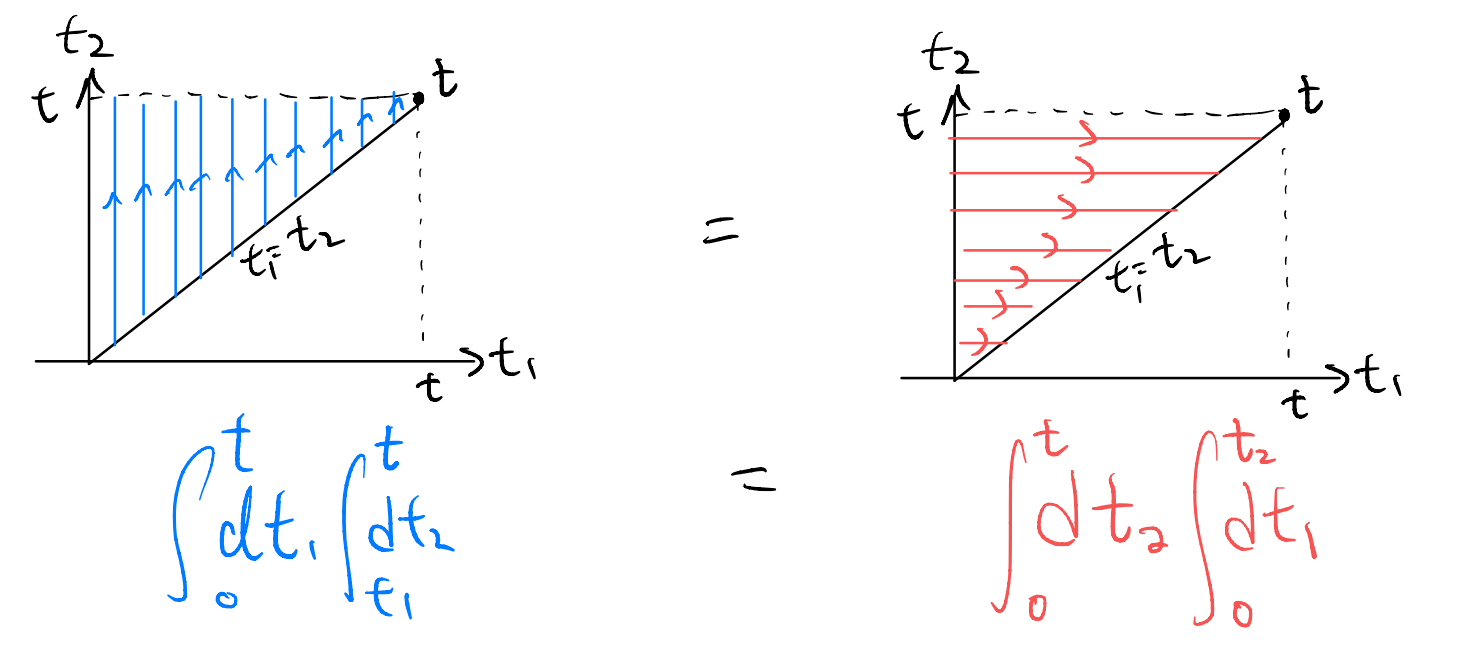 t₂
t
t
t₁=t₂
t₁
t
=
t₂
t
t
t₁=t₂
t₁
t
∫₀ᵗ dt₁ ∫_{t₁}^{t} dt₂ = ∫₀ᵗ dt₂ ∫₀^{t₂} dt₁